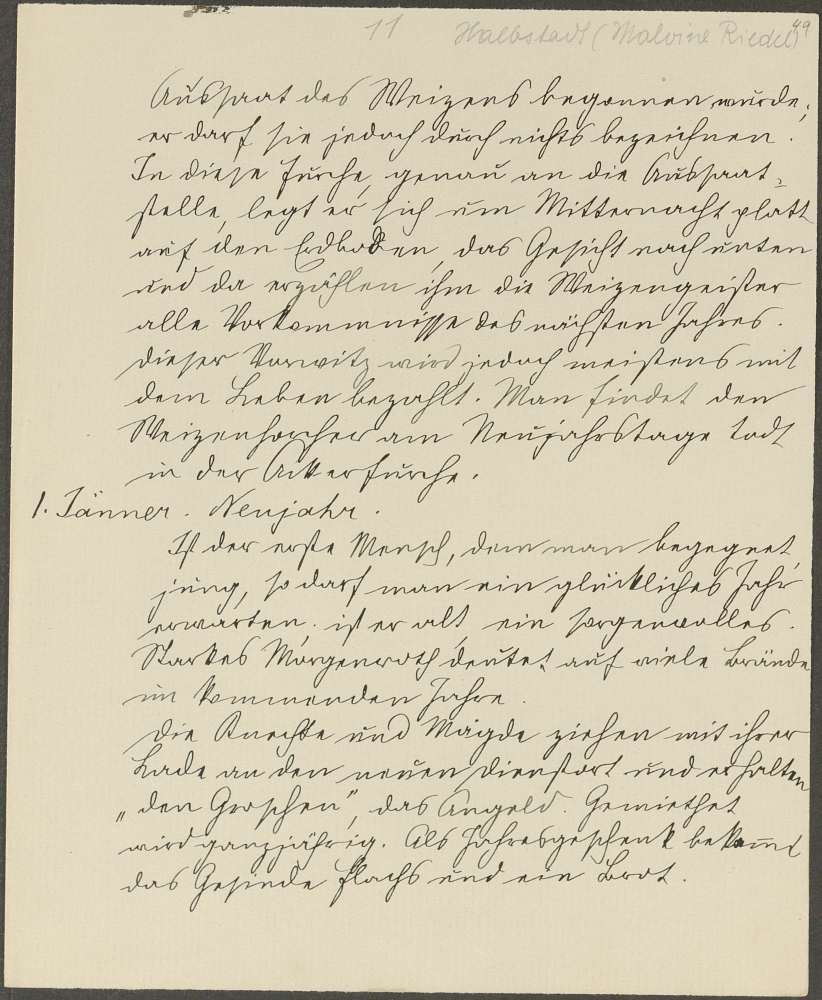 11 Halbstadt (Malvine Riedel) 49
Aussaat des Weizens begonnen wurde,
er darf sie jedoch durch nichts bezeichnen.
In diese Furche, genau an die Aussaat-
stelle, legt er sich um Mitternacht platt
auf den Erdboden, das Gesicht nach unten
und da erzählen ihm die Weizengeister
alle Vorkommnisse des nächsten Jahres.
Dieser Vorwitz wird jedoch meistens mit
dem Leben bezahlt. Man findet den
Weizenhorcher am Neujahrstage todt
in der Ackerfurche.
1. Jänner. Neujahr.
Ist der erste Mensch, dem man begegnet,
jung, so darf man ein glückliches Jahr
erwarten. ist er alt, ein sorgenvolles.
Starkes Morgenroth deutet auf viele Brände
im kommenden Jahre.
Die Knechte und Mägde ziehen mit ihrer
Lade an den neuen Dienstort und erhalten
„den Groschen", das Angeld. Gemiethet
wird ganzjährig. Als Jahresgeschenk bekommt
das Gesinde Flachs und ein Brot.